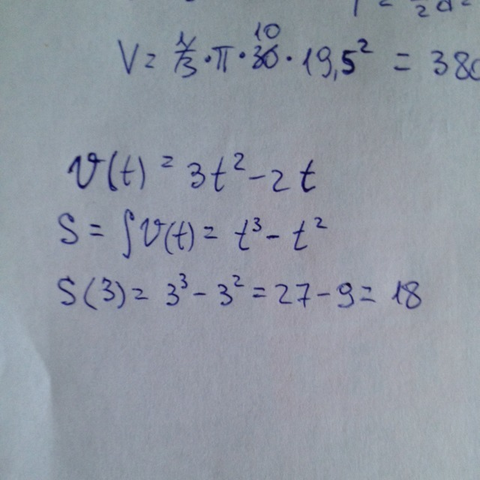 V = 1/3 · π · 30 10 · 19,5² = 380
v(t) = 3t² - 2t
S = ∫v(t) = t³ - t²
S(3) = 3³ - 3² = 27 - 9 = 18